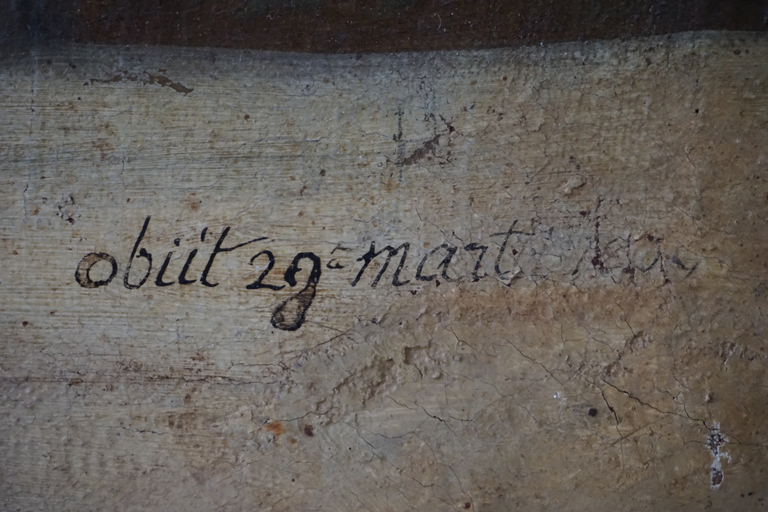 obiit 29.a mart